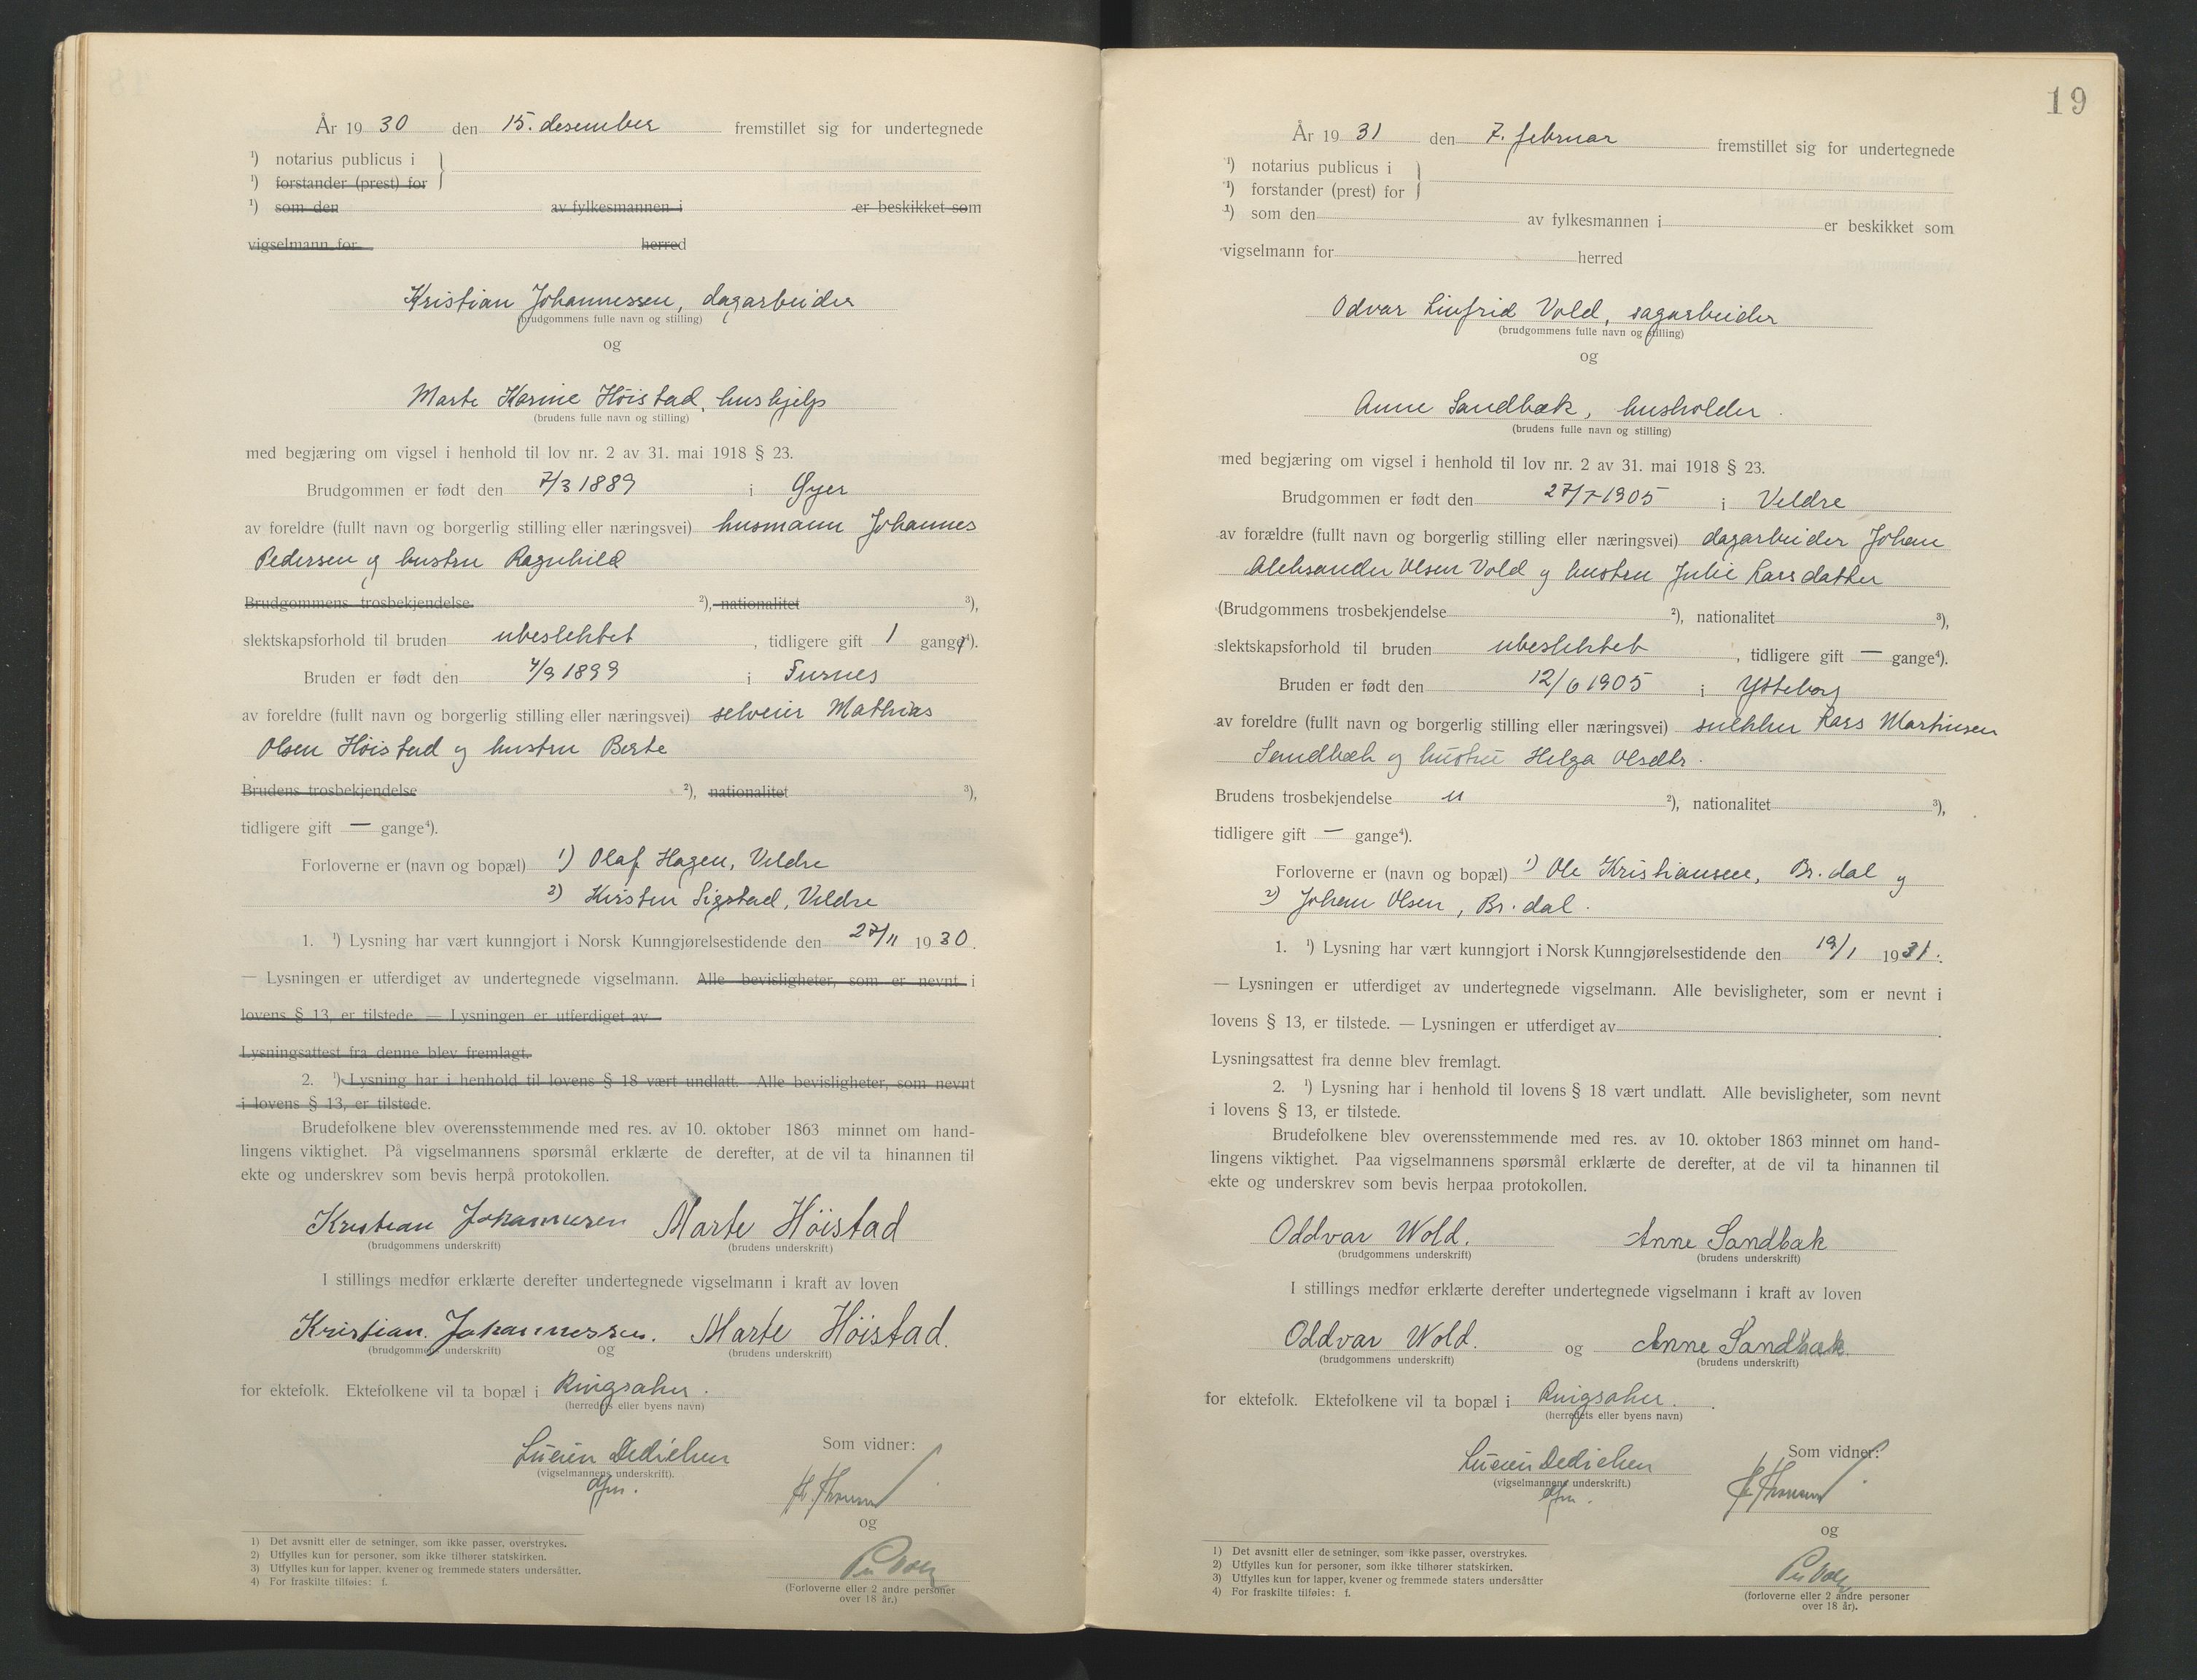 År 19 30 den 15. desember fremstillet sig for undertegnede
¹) notarius publicus i
¹) forstander (prest) for
¹) som den av fylkesmannen i er beskikket som
vigselmann for herred
Kristian Johannessen, dagarbeider
(brudgommens fulle navn og stilling)
og
Marte Karine Höistad, hushjelp
(brudens fulle navn og stilling)
med begjæring om vigsel i henhold til lov nr. 2 av 31. mai 1918 § 23.
Brudgommen er født den 7/3 1889 i Øyer
av foreldre (fullt navn og borgerlig stilling eller næringsvei) husmann Johannes
Pedersen og hustru Ragnhild
Brudgommens trosbekjendelse ²), nationalitet ³),
slektskapsforhold til bruden ubeslektet, tidligere gift 1 gange⁴).
Bruden er født den 7/9 1899 i Furnes
av foreldre (fullt navn og borgerlig stilling eller næringsvei) selveier Mathias
Olsen Höistad og hustru Berte
Brudens trosbekjendelse ²), nationalitet ³),
tidligere gift — gange⁴).
Forloverne er (navn og bopæl) 1) Olaf Hagen, Veldre
2) Kirsten Sigstad, Veldre
1. ¹) Lysning har vært kunngjort i Norsk Kunngjørelsestidende den 27/11 1930.
— Lysningen er utferdiget av undertegnede vigselmann. Alle bevisligheter, som er nevnt i
lovens § 13, er tilstede. — Lysningen er utferdiget av
Lysningsattest fra denne blev fremlagt.
2. ¹) Lysning har i henhold til lovens § 18 vært undlatt. Alle bevisligheter, som nevnt
i lovens § 13, er tilstede.
Brudefolkene blev overensstemmende med res. av 10. oktober 1863 minnet om hand-
lingens viktighet. På vigselmannens spørsmål erklærte de derefter, at de vil ta hinannen til
ekte og underskrev som bevis herpå protokollen.
Kristian Johannesen Marte Höistad
(brudgommens underskrift) (brudens underskrift)
I stillings medfør erklærte derefter undertegnede vigselmann i kraft av loven
Kristian Johannessen. Marte Höistad.
(brudgommens underskrift) og (brudens underskrift)
for ektefolk. Ektefolkene vil ta bopæl i Ringsaker.
(herredets eller byens navn)
Som vidner:
Lucien Dedichen
(vigselmannens underskrift).
dfm.
og
(Forloverne eller 2 andre personer
over 18 år.)
1) Det avsnitt eller de setninger, som ikke passer, overstrykes.
2) Utfylles kun for personer, som ikke tilhører statskirken.
3) Utfylles kun for lapper, kvener og fremmede staters undersåtter.
4) For fraskilte tilføies: f.
19
År 19 31 den 7. februar fremstillet sig for undertegnede
¹) notarius publicus i
¹) forstander (prest) for
¹) som den av fylkesmannen i er beskikket som
vigselmann for herred
Odvar Linfrid Vold, sagarbeider
(brudgommens fulle navn og stilling)
og
Anne Sandbæk, husholder.
(brudens fulle navn og stilling)
med begjæring om vigsel i henhold til lov nr. 2 av 31. mai 1918 § 23.
Brudgommen er født den 27/7 1905 i Veldre
av forældre (fullt navn og borgerlig stilling eller næringsvei) dagarbeider Johan
Aleksander Olsen Vold og hustru Julie Larsdatter
(Brudgommens trosbekjendelse ²), nationalitet ³),
slektskapsforhold til bruden ubeslektet, tidligere gift — gange⁴).
Bruden er født den 12/6 1905 i Ytteborg
av foreldre (fullt navn og borgerlig stilling eller næringsvei) snekker Lars Martinsen
Sandbæk og hustru Helga Olsdtr.
Brudens trosbekjendelse " ²), nationalitet ³),
tidligere gift — gange⁴).
Forloverne er (navn og bopæl) 1) Ole Kristiansen, Br.dal og
2) Johan Olsen, Br.dal.
1. ¹) Lysning har vært kunngjort i Norsk Kunngjørelsestidende den 19/1 1931.
— Lysningen er utferdiget av undertegnede vigselmann. Alle bevisligheter, som er nevnt i
lovens § 13, er tilstede. — Lysningen er utferdiget av
Lysningsattest fra denne blev fremlagt.
2. ¹) Lysning har i henhold til lovens § 18 vært undlatt. Alle bevisligheter, som nevnt
i lovens § 13, er tilstede.
Brudefolkene blev overensstemmende med res. av 10. oktober 1863 minnet om hand-
lingens viktighet. Paa vigselmannens spørsmål erklærte de derefter, at de vil ta hinannen til
ekte og underskrev som bevis herpaa protokollen.
Oddvar Wold. Anne Sandbak
(brudgommens underskrift) (brudens underskrift)
I stillings medfør erklærte derefter undertegnede vigselmann i kraft av loven
Oddvar Wold. og Anne Sandbæk.
(brudgommens underskrift) (brudens underskrift)
for ektefolk. Ektefolkene vil ta bopæl i Ringsaker.
(herredets eller byens navn)
Som vidner:
Lucien Dedichen
(vigselmannens underskrift.)
dfm.
og
(forloverne eller 2 andre personer
over 18 år).
1) Det avsnitt eller de setninger, som ikke passer, overstrykes.
2) Utfylles kun for personer, som ikke tilhører statskirken.
3) Utfylles kun for lapper, kvener og fremmede staters undersåtter
4) For fraskilte tilføies: f.